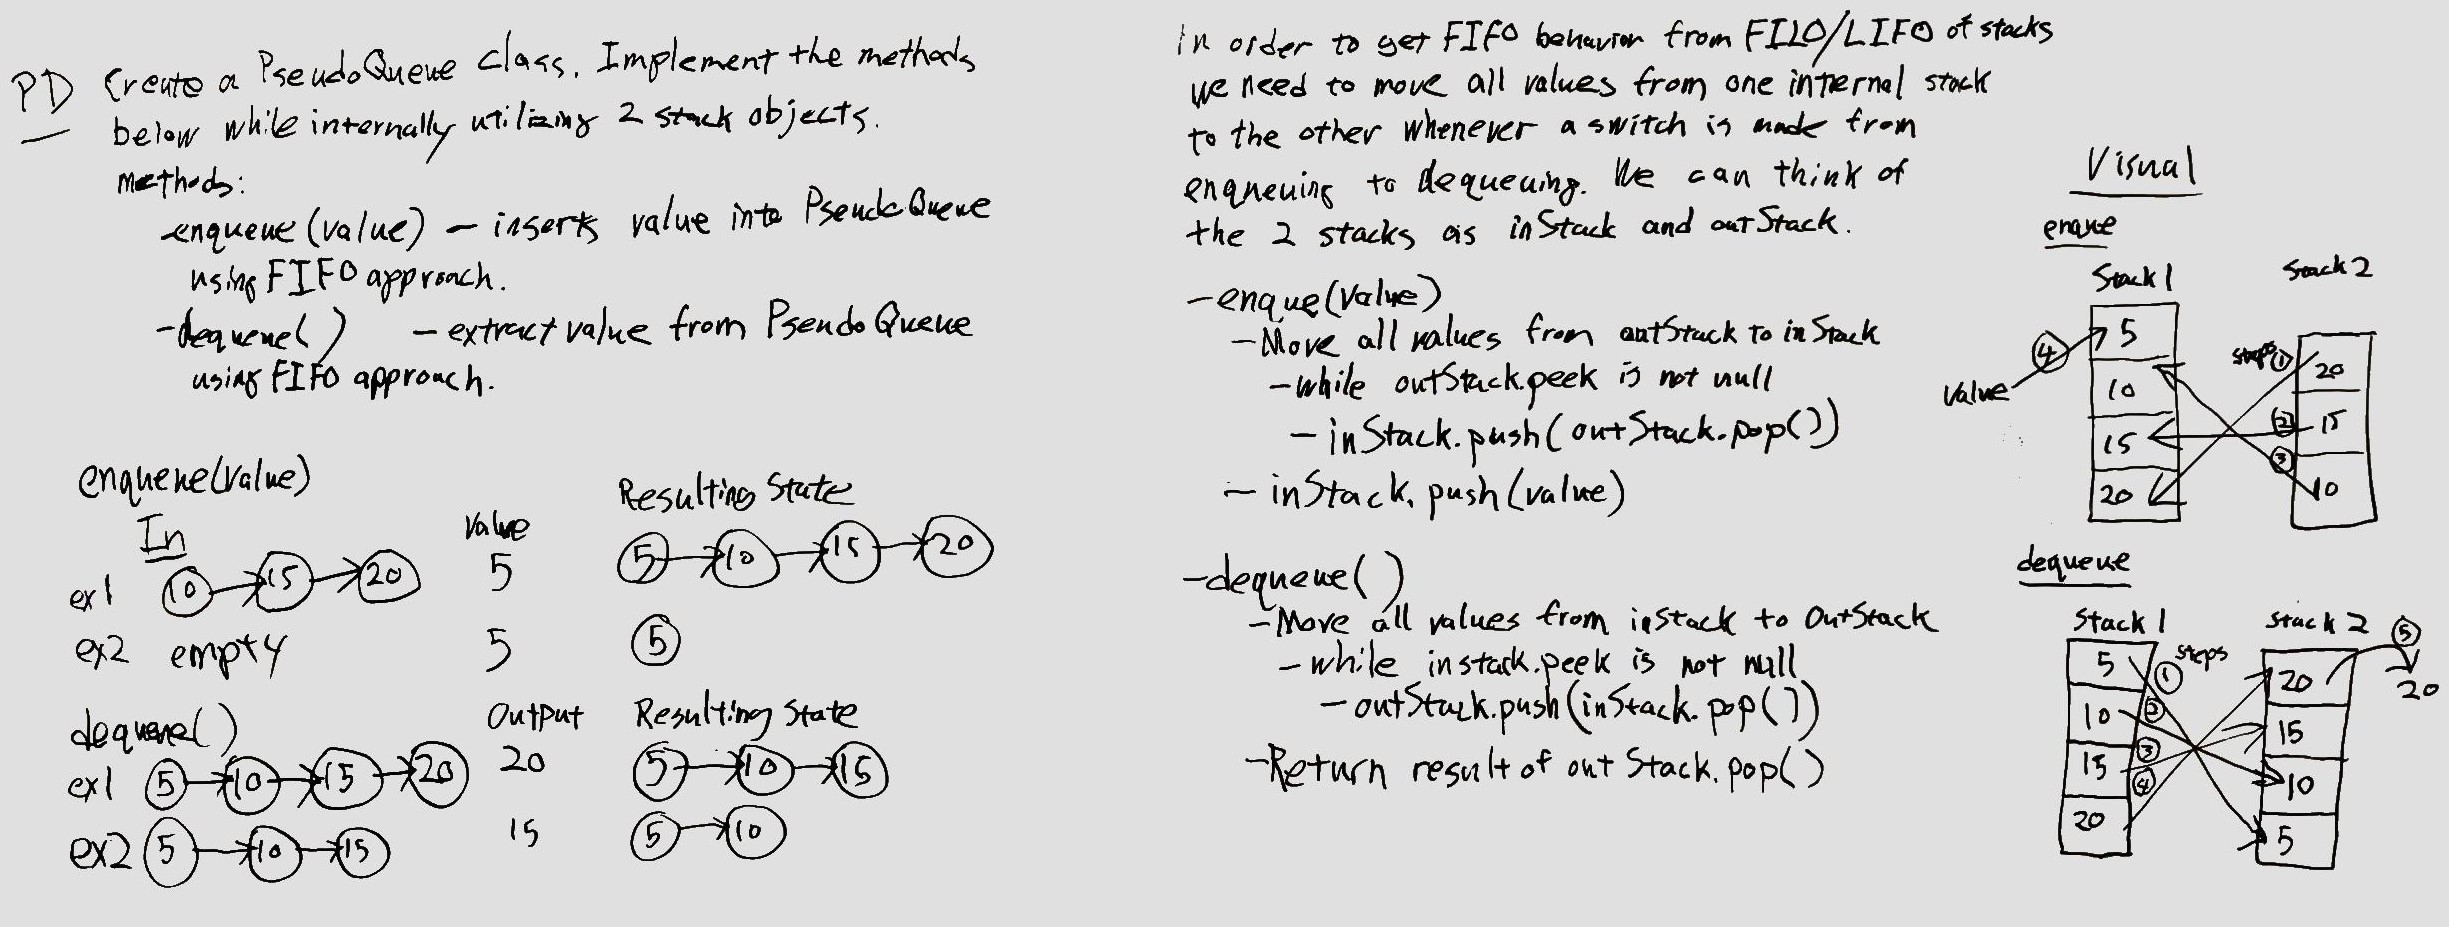 PD Create a PseudoQueue class. Implement the methods
below while internally utilizing 2 stack objects.
methods:
-enqueue(value) - inserts value into PseudoQueue
using FIFO approach.
-dequeue() - extract value from PseudoQueue
using FIFO approach.
enqueue(value)
In Value Resulting State
ex1 10 15 20 5 5 10 15 20
ex2 empty 5 5
dequeue() Output Resulting State
ex1 5 10 15 20 20 5 10 15
ex2 5 10 15 15 5 10
In order to get FIFO behavior from FILO/LIFO of stacks
we need to move all values from one internal stack
to the other whenever a switch is made from
enqueuing to dequeuing. We can think of
the 2 stacks as inStack and outStack.
-enque(value)
-Move all values from outStack to inStack
-while outStack.peek is not null
- inStack.push(outStack.pop())
- inStack.push(value)
-dequeue()
-Move all values from instack to OutStack
-while instack.peek is not null
-outStack.push(inStack.pop())
-Return result of outStack.pop()
Visual
enque
Stack 1 Stack 2
Value 4 5 steps 1 20
10 2 15
15 3 10
20
dequeue
Stack 1 steps Stack 2
5 1 20 5 20
10 2 15
15 3 10
20 4 5